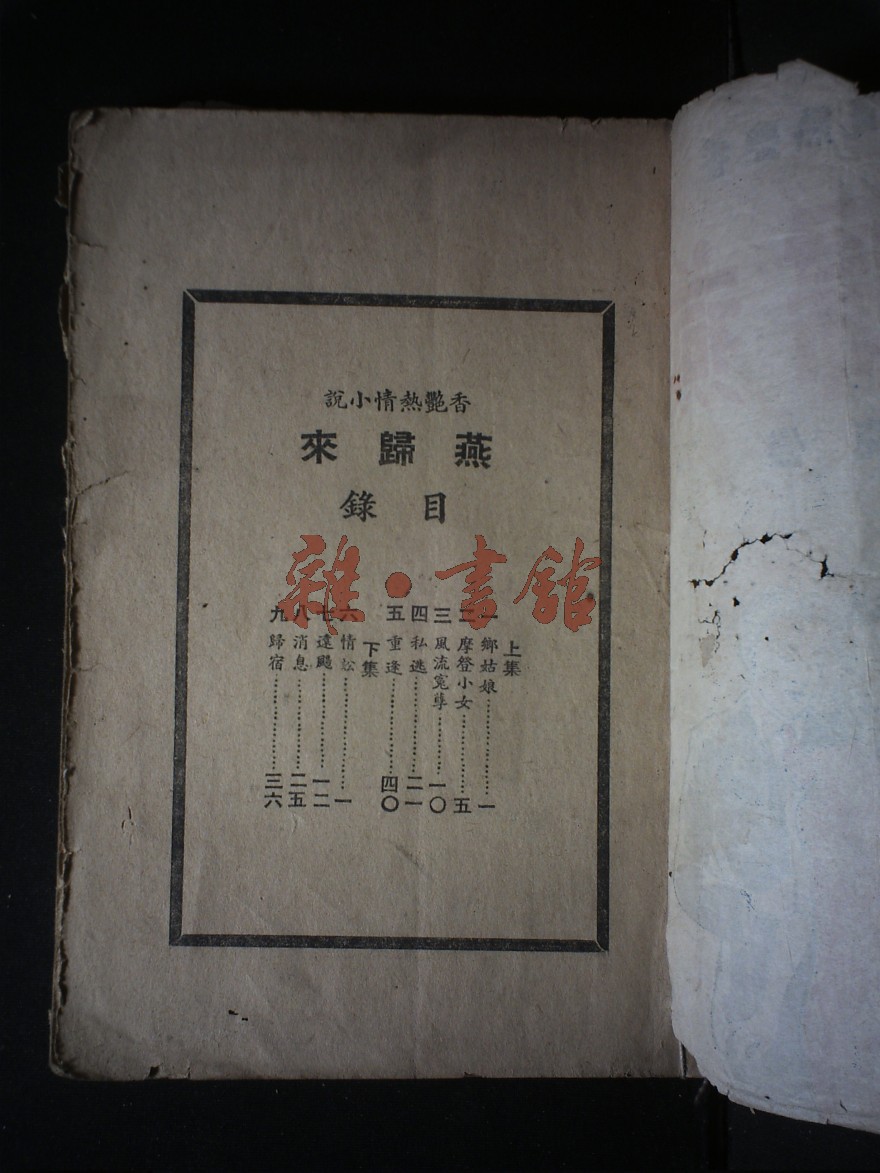 香艷熱情小說
燕歸來
目錄
上集
一 鄉姑娘……………………一
二 摩登小女………………五
三 風流寃孽………………一〇
四 私逃……………………二一
五 重逢……………………四〇
下集
六 情訟……………………一
七 遠颺……………………一二
八 消息……………………二五
九 歸宿……………………三六
雜·書館